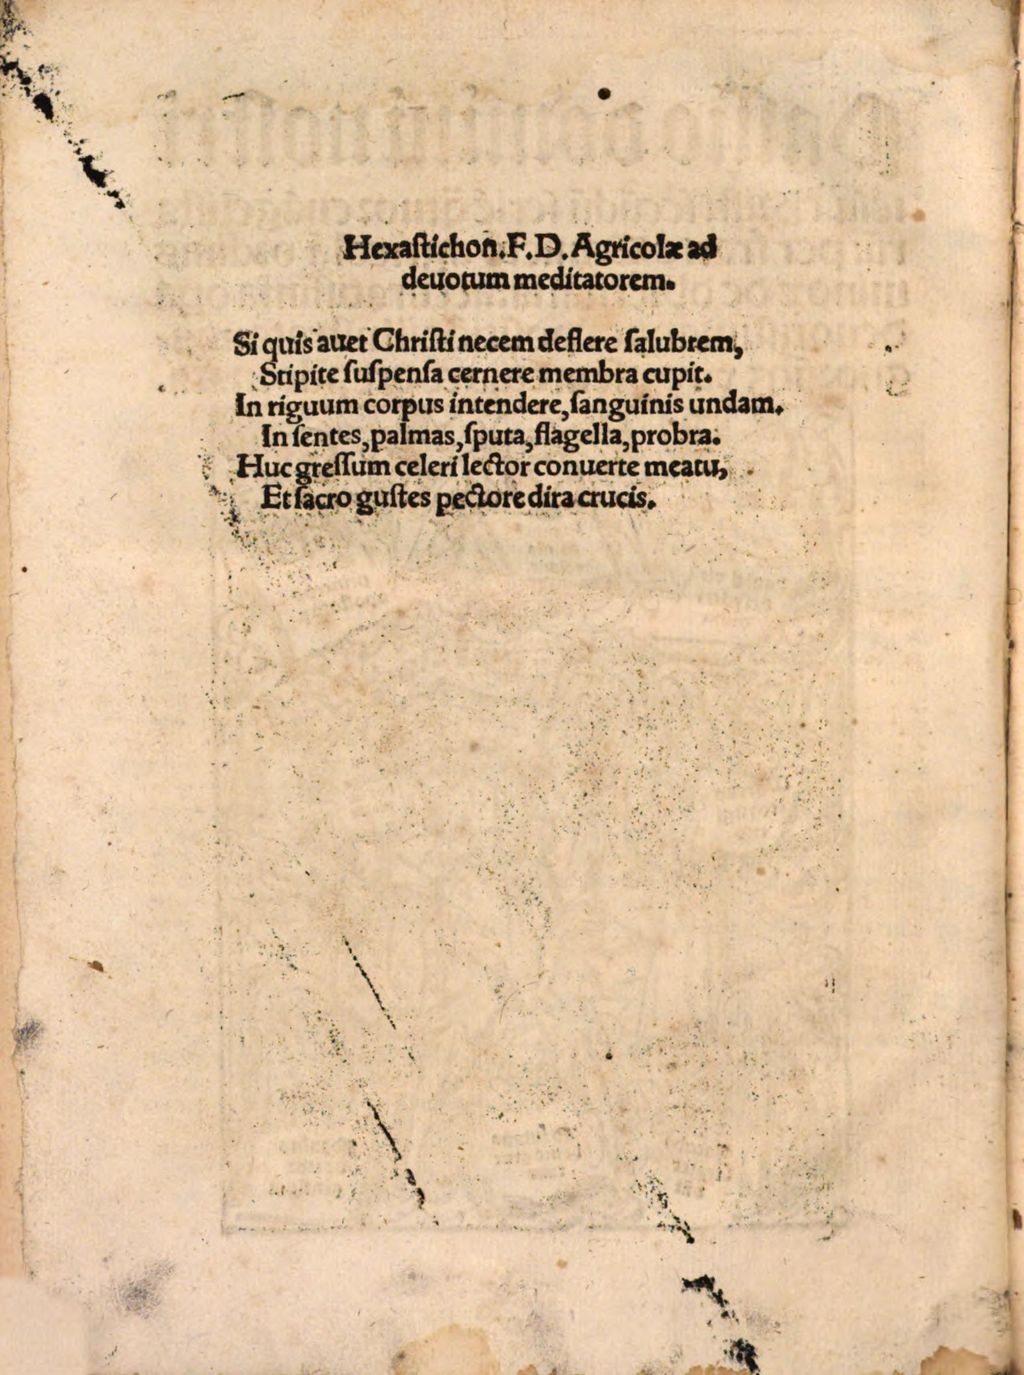 Hexaſtichon.F.D.Agricolæ ad
deuotum meditatorem.
Si quis auet Chriſti necem deflere ſalubrem,
Stipite ſuſpenſa cernere membra cupit.
In riguum corpus intendere,ſanguinis undam.
In ſentes,palmas,ſputa,flagella,probra.
Huc greſſum celeri lector conuerte meatu,
Et ſacro guſtes pectore dira crucis.